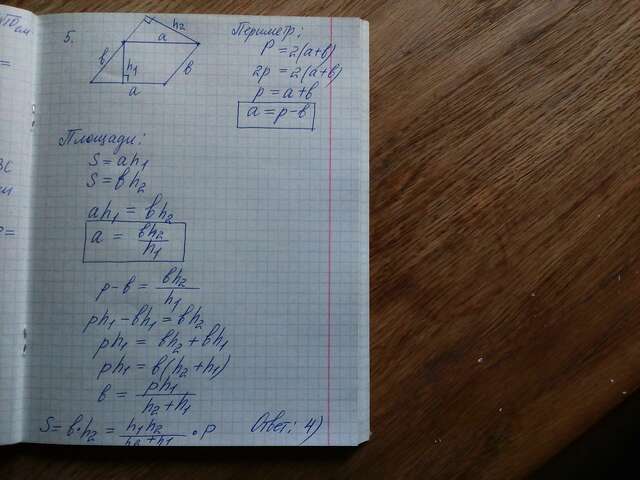 5.
h₂
a
в
h₁
в
a
Периметр:
P = 2(a+в)
2p = 2(a+в)
p = a+в
a = p-в
Площади:
S = ah₁
S = вh₂
ah₁ = вh₂
a = вh₂/h₁
p-в = вh₂/h₁
ph₁-вh₁ = вh₂
ph₁ = вh₂+вh₁
ph₁ = в(h₂+h₁)
в = ph₁/h₂+h₁
S = в·h₂ = h₁h₂/h₂+h₁ · p
Ответ: 4)